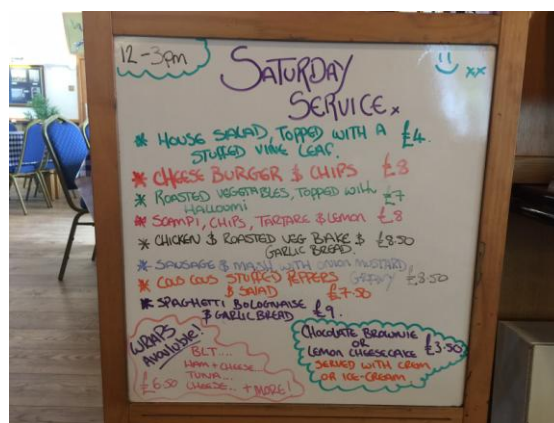 12-3pm
SATURDAY
SERVICE x
xx
* HOUSE SALAD, TOPPED WITH A £4.
STUFFED VINE LEAF.
* CHEESE BURGER & CHIPS £8
* ROASTED VEGETABLES, TOPPED WITH £7
HALLOUMI
* SCAMPI, CHIPS, TARTARE & LEMON £8
* CHICKEN & ROASTED VEG BAKE & £8.50
GARLIC BREAD
* SAUSAGE & MASH WITH ONION MUSTARD
GRAVY £8.50
* COUS COUS STUFFED PEPPERS
& SALAD £7.50
* SPAGHETTI BOLOGNAISE £9.
& GARLIC BREAD
WRAPS
AVAILABLE!
BLT....
HAM + CHEESE
TUNA...
£6.50 CHEESE... + MORE!
CHOCOLATE BROWNIE
OR £3.50
LEMON CHEESECAKE
SERVED WITH CREM
OR ICE-CREAM.